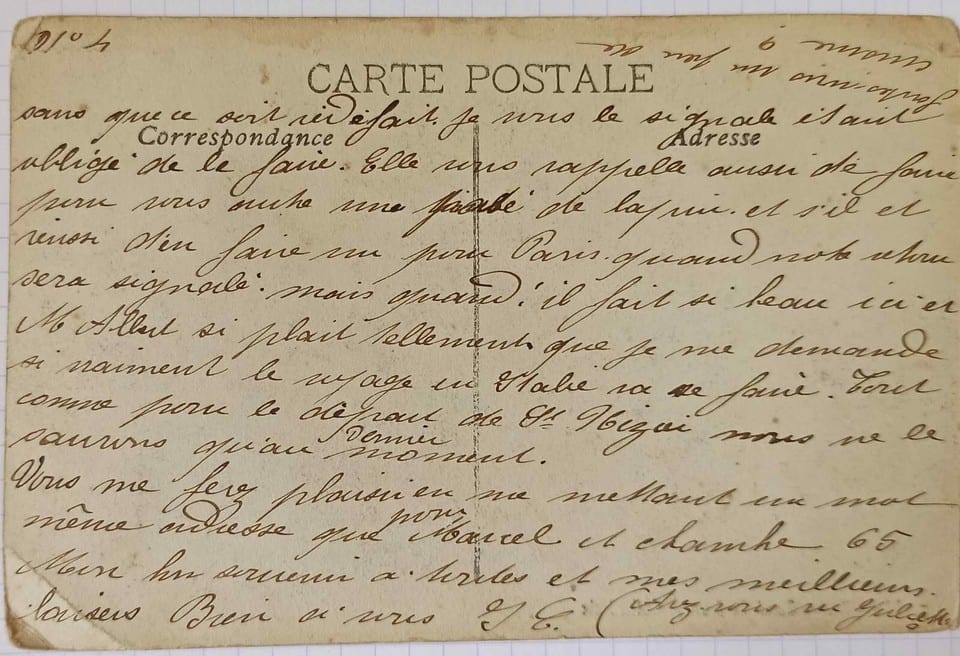 N° 4
CARTE POSTALE
sans que ce soit redéfait. Je vous le signale étant
Correspondance
Adresse
obligé de le faire. Elle vous rappelle aussi de faire
pour vous autre une de lapin. et s'il et
réussi d'en faire un pour Paris. quand notre retour
sera signalé. mais quand! il fait si beau ici et
M Allut si plait tellement. que je me demande
si vraiment le voyage en Italie va se faire. Tout
comme pour le départ de St. Nizier nous ne le
saurons qu'au dernier moment.
Vous me ferez plaisir en me mettant un mot
même adresse que pour Marcel et chambre 65
Mon bon souvenir a toutes et mes meilleurs
baisers Bien a vous (Avez vous vu Juliette